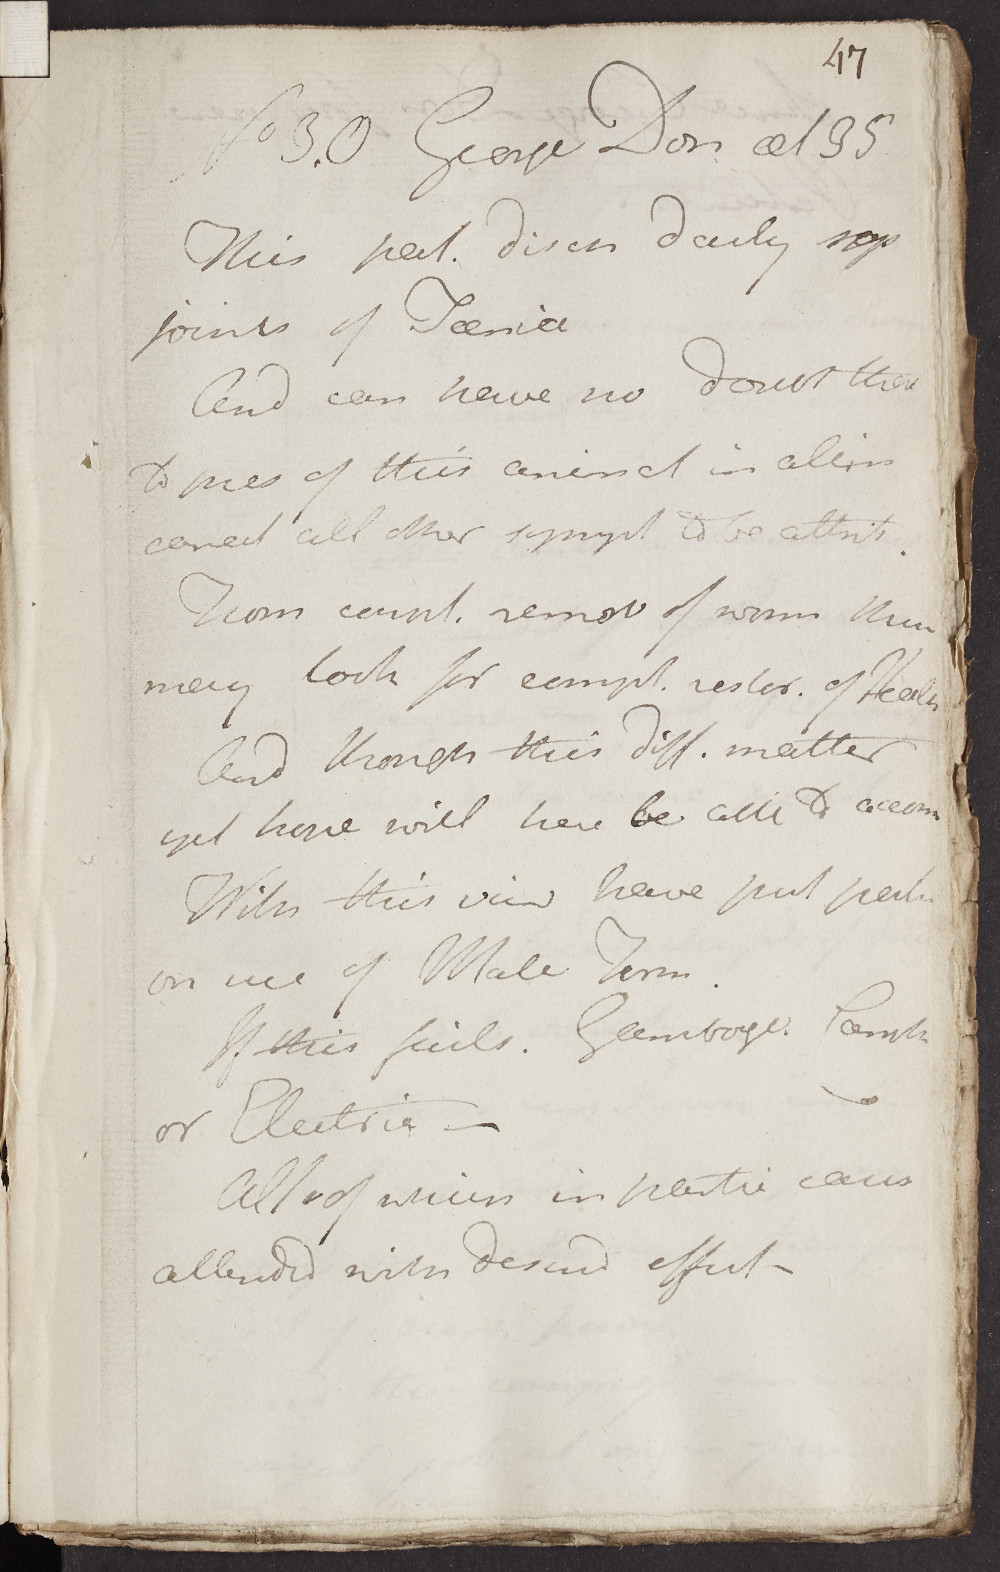 47
No 3.0 George Don æt 35
This pat. disch daily sep
joints of Taenia
And can have no doubt that
to pres of this animal in alim
canal all other sympt to be attrib.
From compl. remov of worm then
may look for compl. restor. of Health
And though this diff. matter
yet hope will here be able to accom
With this view have put patn
on use of Male Fern.
If this fails. Gamboge. Camph
or Electric —
All of which in partic cases
attended with desired effect —